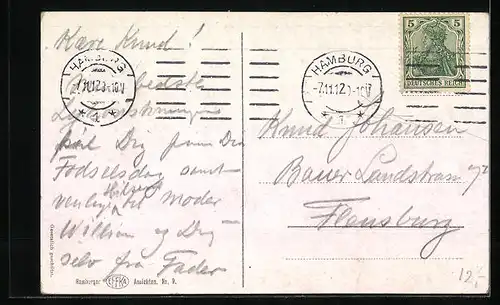 Kære Knud!
Mine bedste
Lykønskninger
paa Dig paa Din
Fødselsdag samt
venlig Hilsen
til Moder
William og Dig
selv fra Fader
HAMBURG
-7.11.12
1
HAMBURG
-7.11.12 -10V
1
5 5
DEUTSCHES REICH
Knud Johansen
Bauer Landstrasse
Flensburg
Gesetzlich geschützt.
Hamburger EFFKA Ansichten, Nr. 9.
12,-